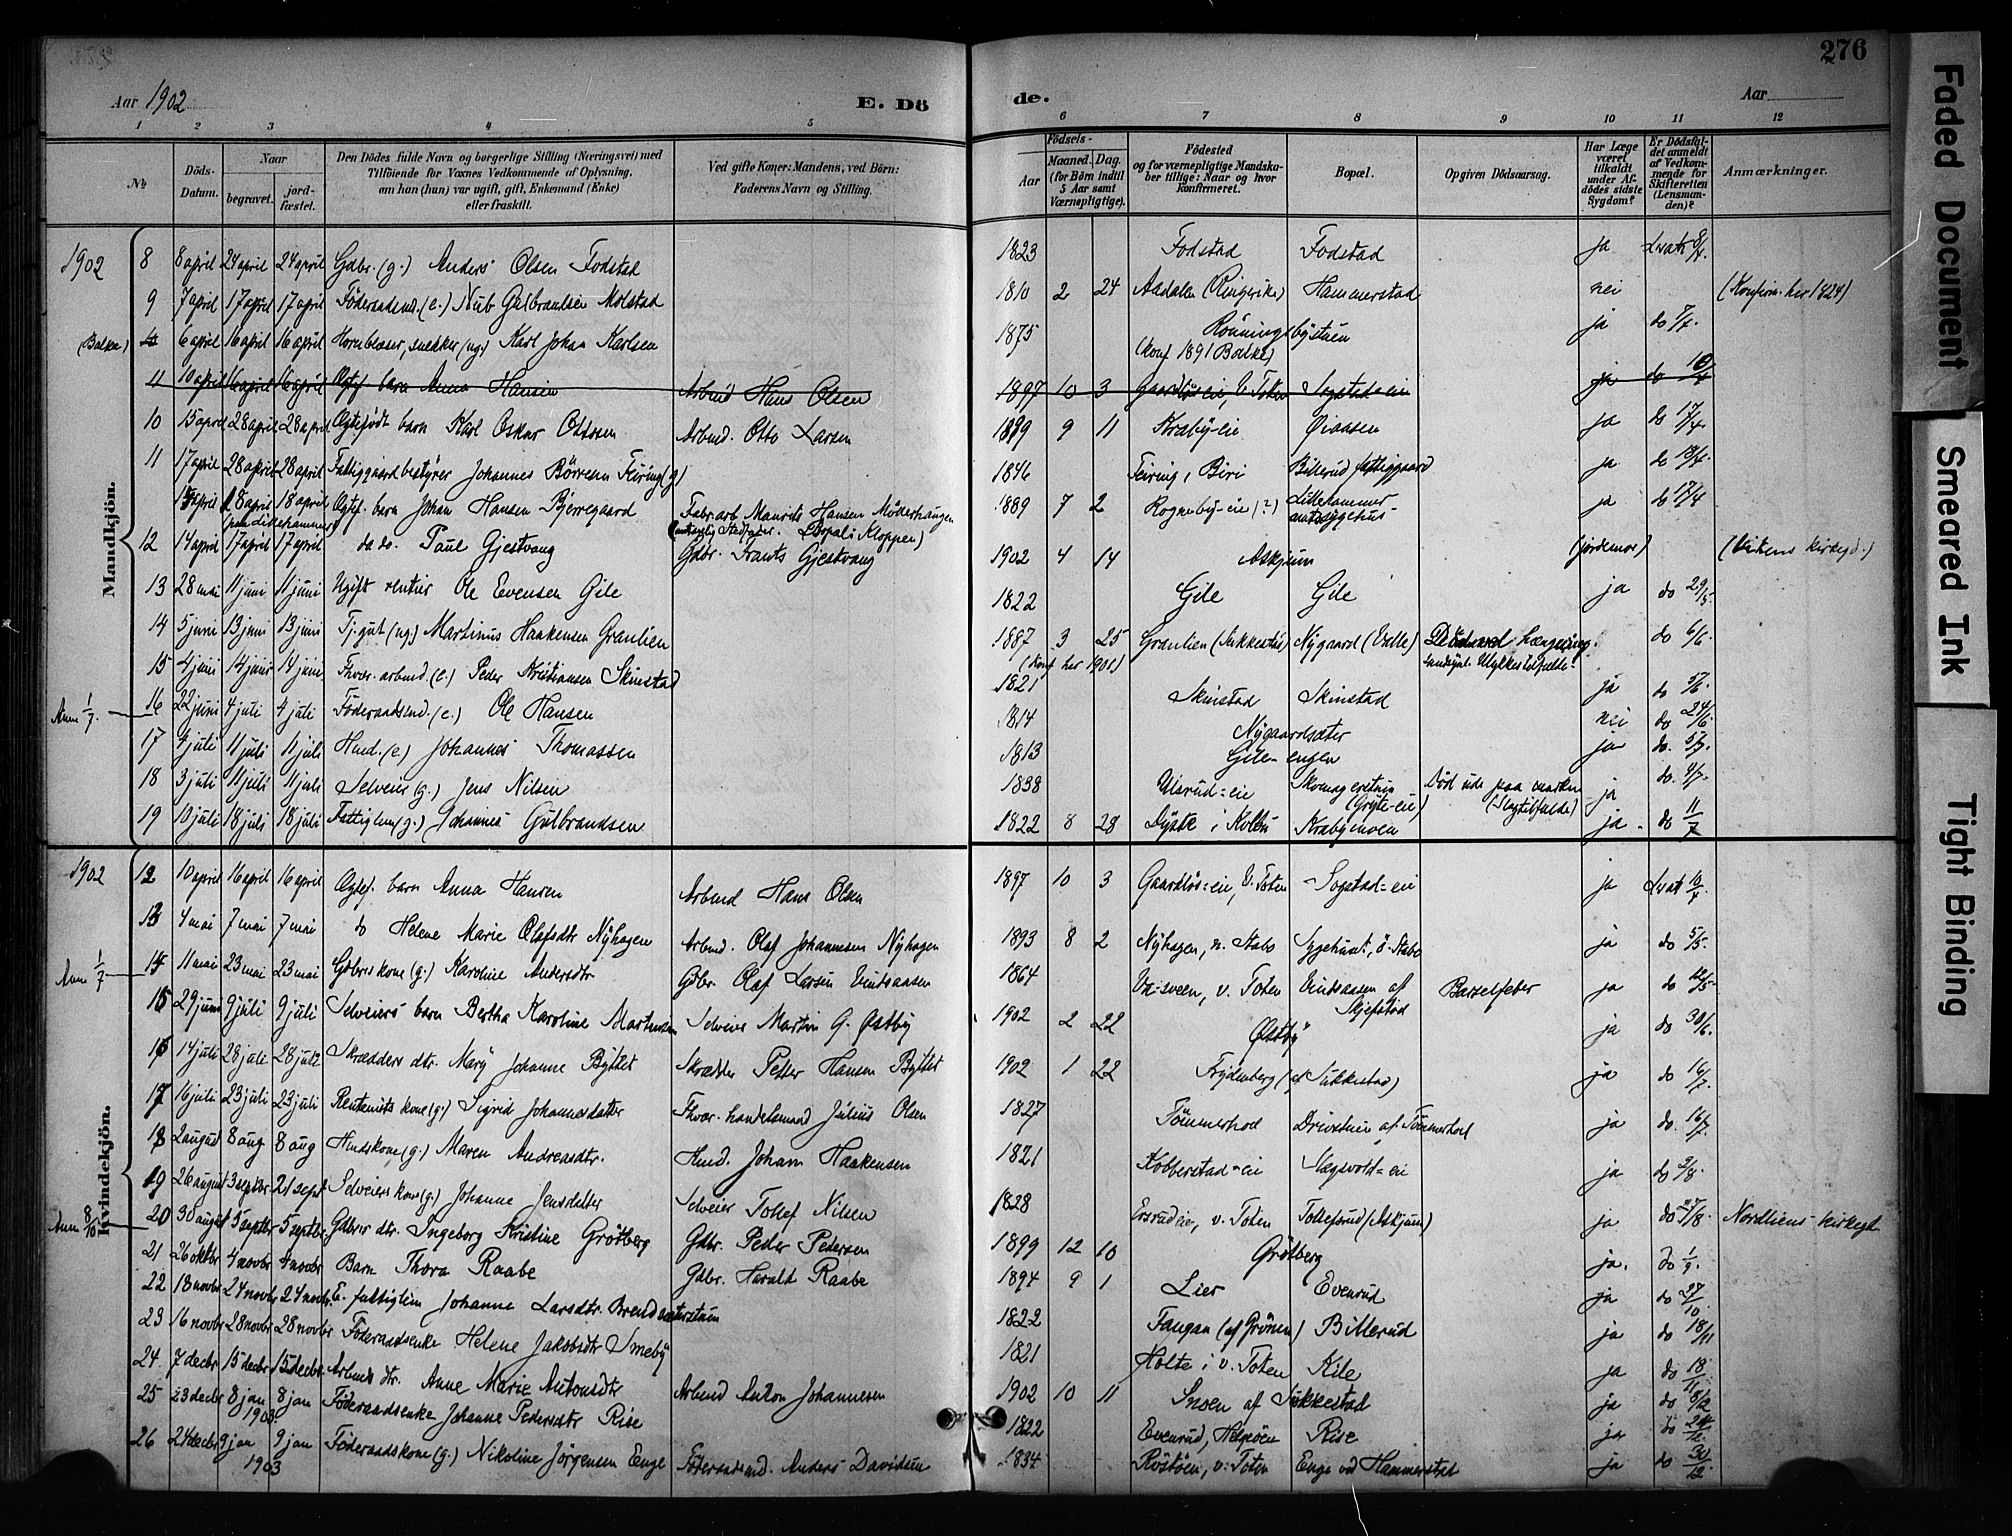 276
Aar 1902
E. Dö
de.
Aar
1 2 3 4 5 6 7 8 9 10 11 12
No
Döds-Datum.
Naar
begravet.
jord-fæstet.
Den Dödes fulde Navn og borgerlige Stilling (Næringsvei) med
Tilföiende for Voxnes Vedkommende af Oplysning,
om han (hun) var ugift, gift, Enkemand (Enke)
eller fraskilt.
Ved gifte Koner: Mandens, ved Börn:
Faderens Navn og Stilling.
Födsels-
Aar
Maaned. Dag.
(for Börn indtil
5 Aar samt
Værnepligtige).
Födested
og for værnepligtige Mandska-
ber tillige: Naar og hvor
konfirmeret.
Bopæl.
Opgiven Dödsaarsag.
Har Læge
været
tilkaldt
under Af-
dödes sidste
Sygdom?
Er Dödsfal-
det anmeldt
af Vedkom-
mende for
Skifteretten
(Lensman-
den)?
Anmærkninger.
Mandkjön.
1902 8 8 april 24 april 24 april Gdbr. (g.) Anders Olsen Fodstad 1823 Fodstad Fodstad ja Lvatn 8/4.
9 7 april 17 april 17 april Föderaadsmd. (e.) Nub Gulbrandsen Molstad 1810 2 24 Aadalen (Ringerike) Hammerstad nei (Konfirm. her 1824)
(Balke) 6 april 16 april 16 april Hornblæser, snekker (ug.) Karl Johan Karlsen 1875 Rönningsbystuen ja do 7/4.
(konf 1891 Balke)
11 10 april 16 april 16 april Ægtef. barn Anna Hansen Arbmd Hans Olsen 1897 10 3 Gaardlös-eie, V. Toten Sogstad=eie ja do 10/4
10 15 april 28 april 28 april Ægtefödt barn Karl Oskar Ottosen Arbmd. Otto Larsen 1899 9 11 Kraby-eie Øiaasen ja do 17/4.
11 17 april 28 april 28 april Fattiggaardbestyrer Johannes Börresen Feiring (g) 1846 Feiring, Biri Billerud fattiggaard ja do 18/4.
15 april 18 april 18 april Ægtef. barn Johan Hansen Bjerregaard Fabr.arb Maurits Hansen Möderhaugen 1889 7 2 Rogneby-eie (?) Lillehammer ja do 17/4
(paa Lillehammer) Kloppen)
12 14 april 17 april 17 april do do. Paul Gjestvang Gdbr. Frants Gjestvang 1902 4 14 Askjum (jordemor) (Vikens kirkegd.)
13 28 mai 11 juni 11 juni Ugift rentier Ole Evensen Gile 1822 Gile Gile ja do 29/5.
14 5 juni 13 juni 13 juni Tj.gut (ug.) Martinus Haakensen Granlien 1887 3 25 Granlien (Sukkestad) Nygaard (Valle) Död ved hængning. do 6/6.
(Konf her 1901) Ulykkestilfælde.
15 4 juni 14 juni 14 juni Fhvr. arbmd. (e.) Peder Kristiansen Skinstad 1821 Skinstad Skinstad ja do 5/6.
Anm 1/7. 16 22 juni 4 juli 4 juli Föderaadsmd. (e.) Ole Hansen 1814 Nygaardsæter nei do 24/6
17 4 juli 11 juli 11 juli Hmd. (e) Johannes Thomassen 1813 Gile-engen ja do. 5/7.
18 3 juli 11 juli 11 juli Selveier (g.) Jens Nilsen 1838 Ulsrud=eie (Gryte-eie) Död ude paa marken ja do. 4/7.
(Slagtilfælde)
19 10 juli 18 juli 18 juli Fattiglem (g.) Johannes Gulbrandsen 1822 8 28 Dyste i Kolbu Krabymoen ja do 11/7
Kvindekjön.
1902 12 10 april 16 april 16 april Ægtef. barn Anna Hansen Arbmd Hans Olsen 1897 10 3 Gaardlös=eie, V. Toten Sogstad=eie ja Lvat 10/4
13 4 mai 7 mai 7 mai do Helene Marie Olafsdtr Nyhagen Arbmd. Olaf Johannesen Nyhagen 1893 8 2 Nyhagen, n. Stabo Sygehuset, ö. Stabo ja do 5/5.
Anm 1/7 14 11 mai 23 mai 23 mai Gdbrs kone (g.) Karoline Andersdtr. Gdbr. Olaf Larsen Vindaasen 1864 sveen, v. Toten Vindaasen af Skjefstad Barselfeber ja do 12/5
15 29 juni 9 juli 9 juli Selveiers barn Bertha Karoline Martinsen Selveier Martin G. Østby 1902 2 22 Østby ja do 30/6.
16 14 juli 28 juli 28 juli Skrædders dtr. Mary Johanne Byttet Skrædder Petter Hansen Byttet 1902 1 22 Frydenberg (af Sukkestad) ja do 16/7.
17 16 juli 23 juli 23 juli Rentenists kone (g.) Sigrid Johannesdatter Fhvr. handelsmand Julius Olsen 1827 Tömmerhol Drivstuen af Tömmerhol ja do. 16/7.
18 2 august 8 aug 8 aug Hmdskone (g.) Maren Andreasdtr. Hmd. Johan Haakensen 1821 Kobberstad=eie Slagsvold=eie ja do 2/8.
19 26 august 3 septbr 21 sept Selveiers kone (g.) Johanne Jensdatter Selveier Tollef Nilsen 1828 Ersrud eie, v. Toten Tollefsrud (Askjum) ja do 27/8. Nordliens kirkegd
Anm 8/10 20 30 august 5 septbr 5 septbr Gdbrs dtr. Ingeborg Kristine Grötberg Gdbr. Peder Pedersen 1899 12 10 Grötberg ja. do 1/9.
21 26 oktbr 4 novbr 4 novbr Barn Thora Raabe Gdbr. Harald Raabe 1894 9 1 Lier Evenrud ja do 27/10.
22 18 novbr 24 novbr 24 novbr. E. fattiglem Johanne Larsdtr. 1822 Fangan (af Grönen) Billerud ja do 18/11
23 16 novbr 28 novbr 28 novbr Föderaadsenke Helene Jakobsdtr Smeby 1821 Holte i v. Toten Kile ja do 18/11
24. 7 decbr 15 decbr 15 decbr Arbmds dtr. Anne Marie Antonsdtr Arbmd Anton Johannesen 1902 10 11 Snoen af Sukkestad ja do 8/12
25 23 decbr 8 jan 8 jan Föderaadsenke Johanne Pedersdtr Rise 1822 Evenrud, Helgöen Rise ja do 24/12.
1903.
26 24 decbr 9 jan 9 jan Föderaadskone (g.) Nikoline Jörgensen Enge Föderaadsmd. Anders Davidsen 1834 Röstöen, v. Toten Enge ved Hammerstad ja do 30/12.
1903
Faded Document
Smeared Ink
Tight Binding